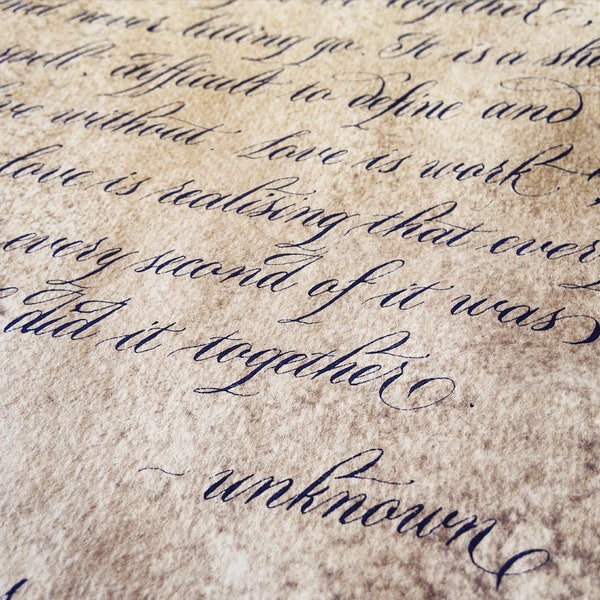 never letting go. It is a
spell. Difficult to define and
without. Love is work.
love is realising that
every second of it was
did it together
~ unknown